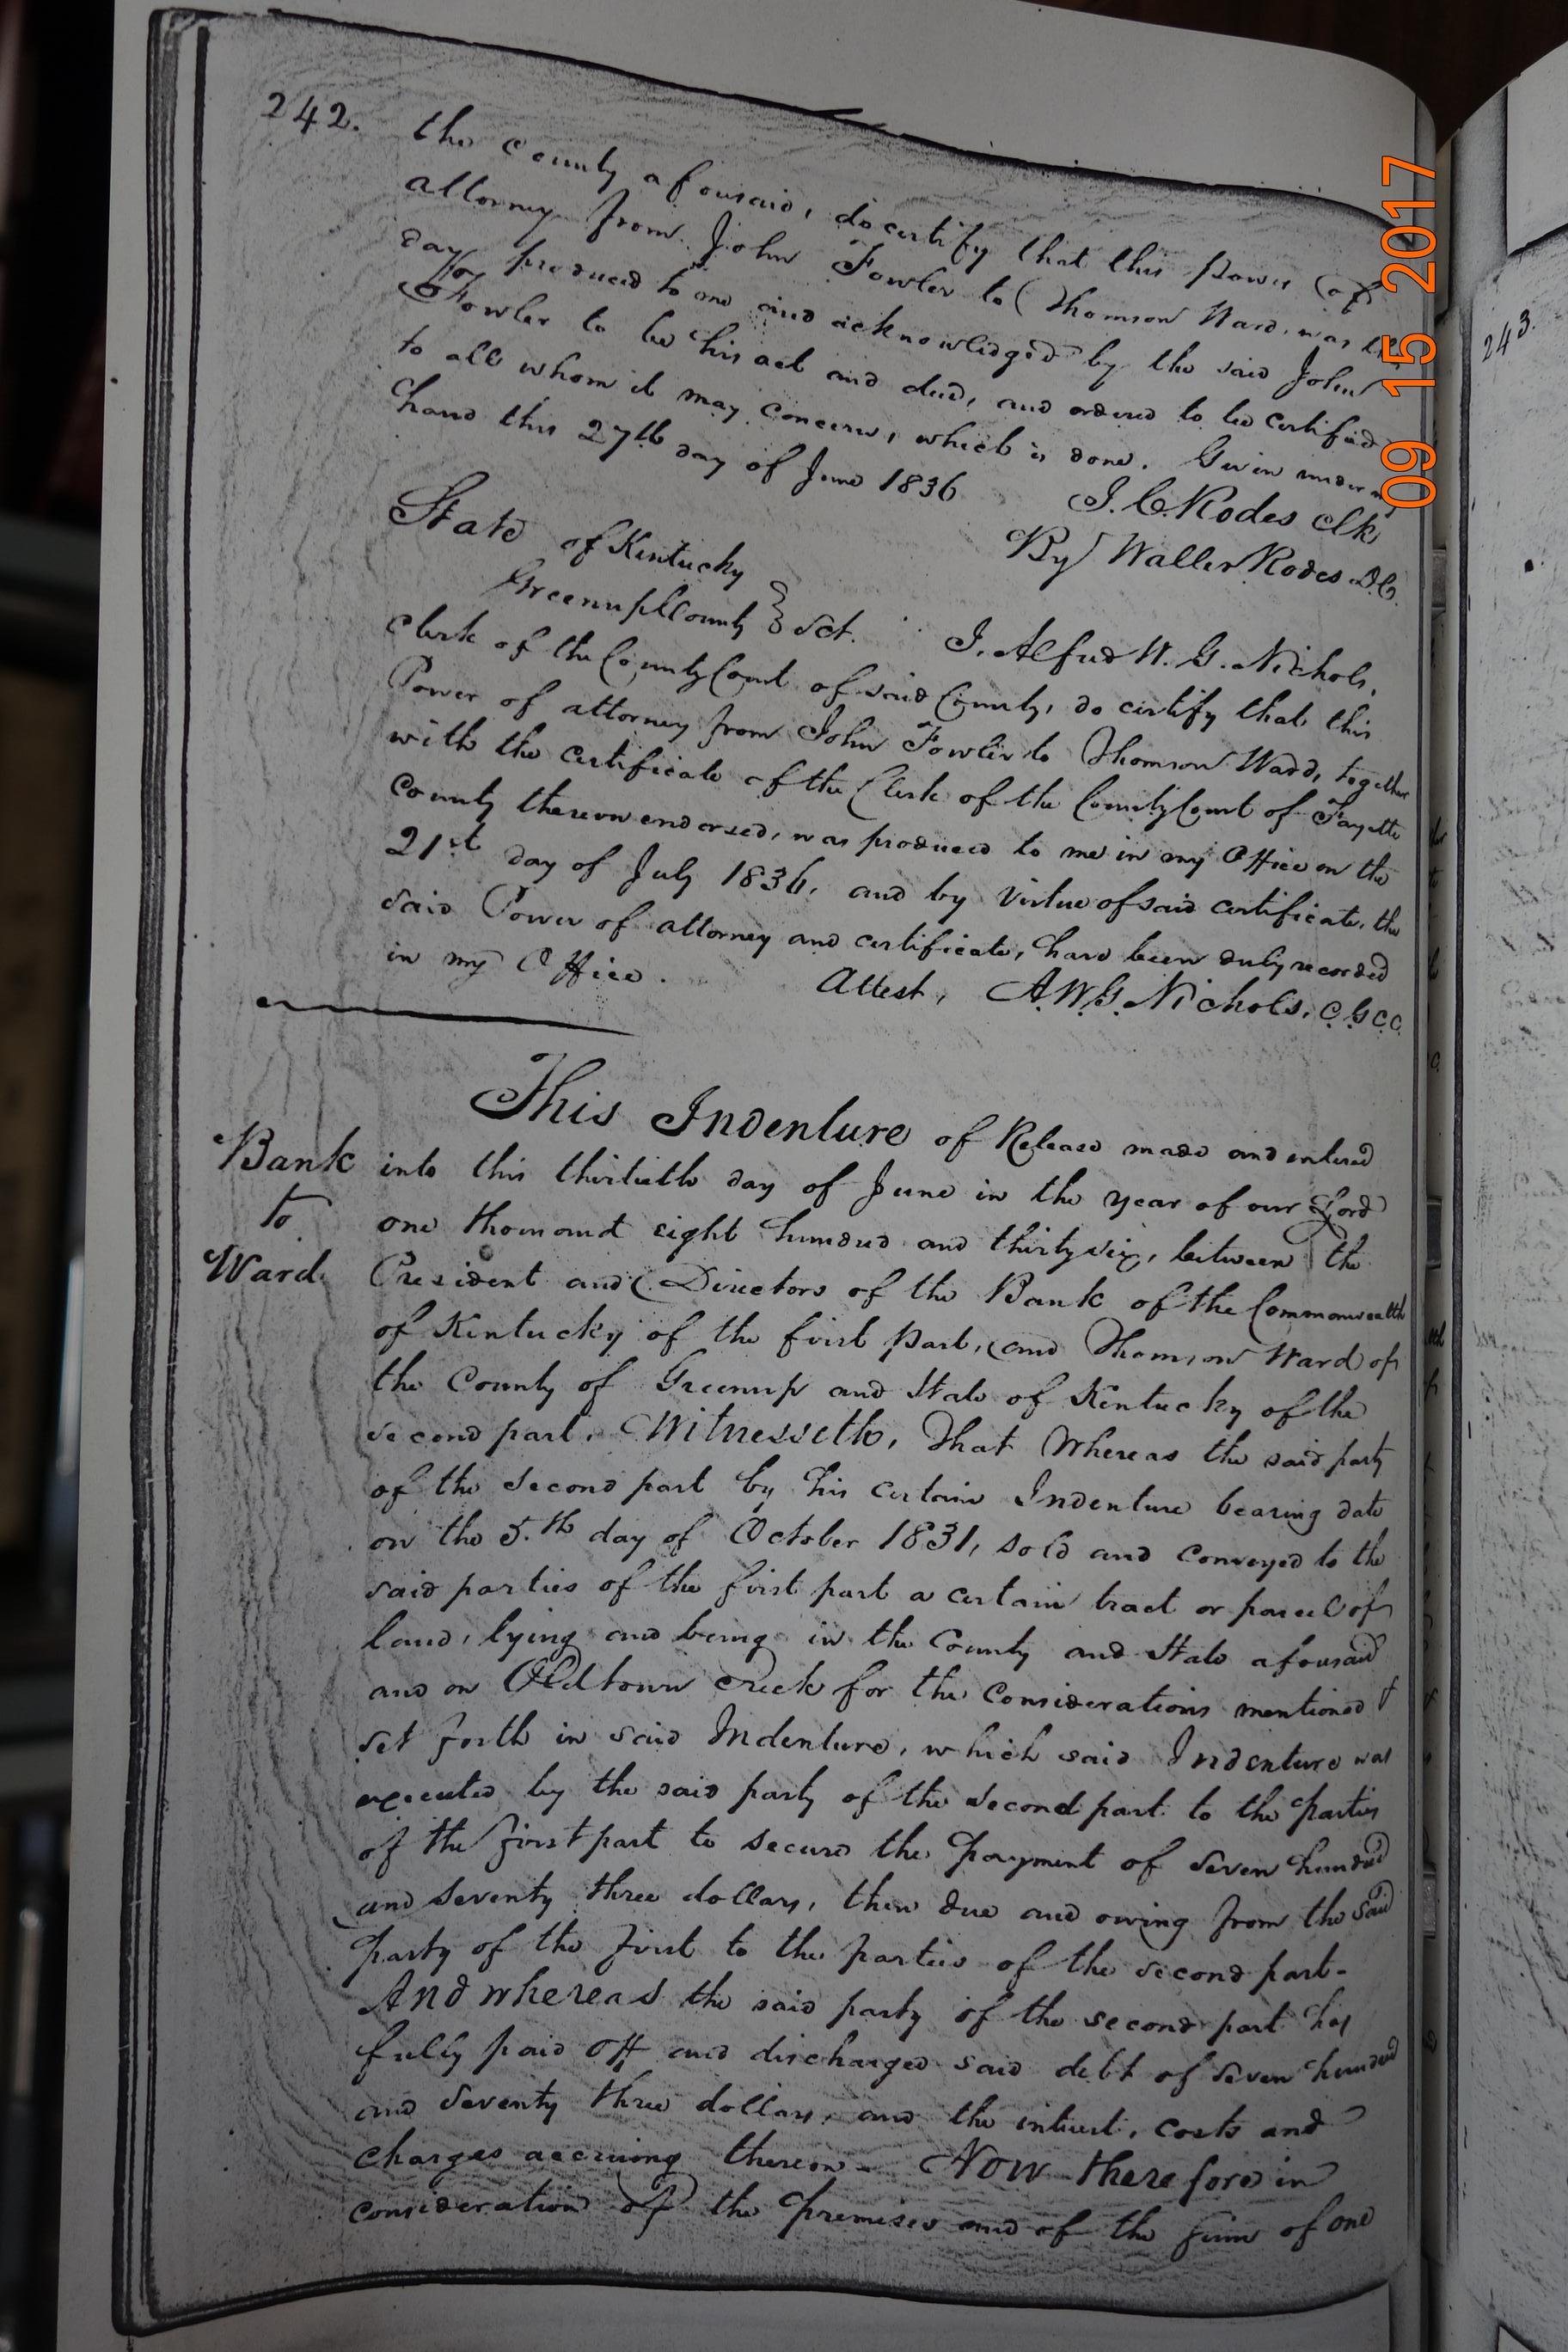 242.
the county aforesaid, do certify that this Power of
attorney from John Fowler to Thomson Ward, was this
day produced to me and acknowledged by the said John
Fowler to be his act and deed, and ordered to be certified
to all whom it may concern, which is done. Given under my
hand this 27th day of June 1836
J. C. Rodes Clk
By Waller Rodes D.C.
State of Kentucky
Greenup County } Sct. I, Alfred W. G. Nichols,
clerk of the County Court of said County, do certify that this
Power of attorney from John Fowler to Thomson Ward, together
with the certificate of the Clerk of the County Court of Fayette
County thereon endorsed, was produced to me in my Office on the
21st day of July 1836, and by virtue of said certificate, the
said Power of attorney and certificate, have been duly recorded
in my Office. Attest, A.W.G. Nichols, C.G.C.C.
This Indenture of Release made and entered
Bank into this thirtieth day of June in the year of our Lord
to one thousand eight hundred and thirty six, between the
Ward. President and Directors of the Bank of the Commonwealth
of Kentucky of the first part, and Thomson Ward of
the County of Greenup and State of Kentucky of the
second part, Witnesseth, That Whereas the said party
of the second part by his certain Indenture bearing date
on the 5.th day of October 1831, sold and conveyed to the
said parties of the first part a certain tract or parcel of
land, lying and being in the County and State aforesaid
and on Oldtown creek for the considerations mentioned &
set forth in said Indenture, which said Indenture was
executed by the said party of the second part to the parties
of the first part to secure the payment of seven hundred
and seventy three dollars, then due and owing from the said
party of the first to the parties of the second part-
And whereas the said party of the second part has
fully paid off and discharged said debt of seven hundred
and seventy three dollars, and the interest, costs and
charges accruing thereon - Now therefore in
consideration of the premises and of the sum of one
243.
09 15 2017